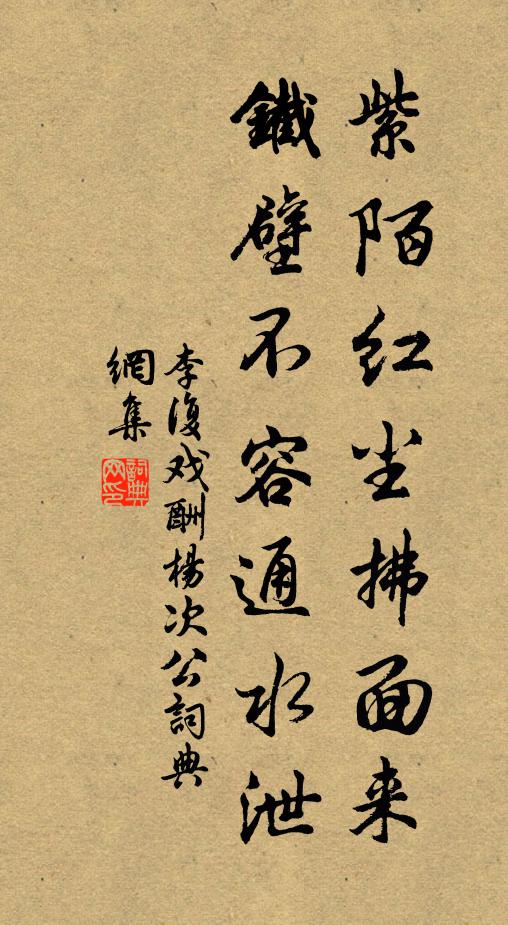 紫陌红尘拂面来
鐵壁不容通水泄
李復戏酬楊次公詞典
網集
詞典
网印